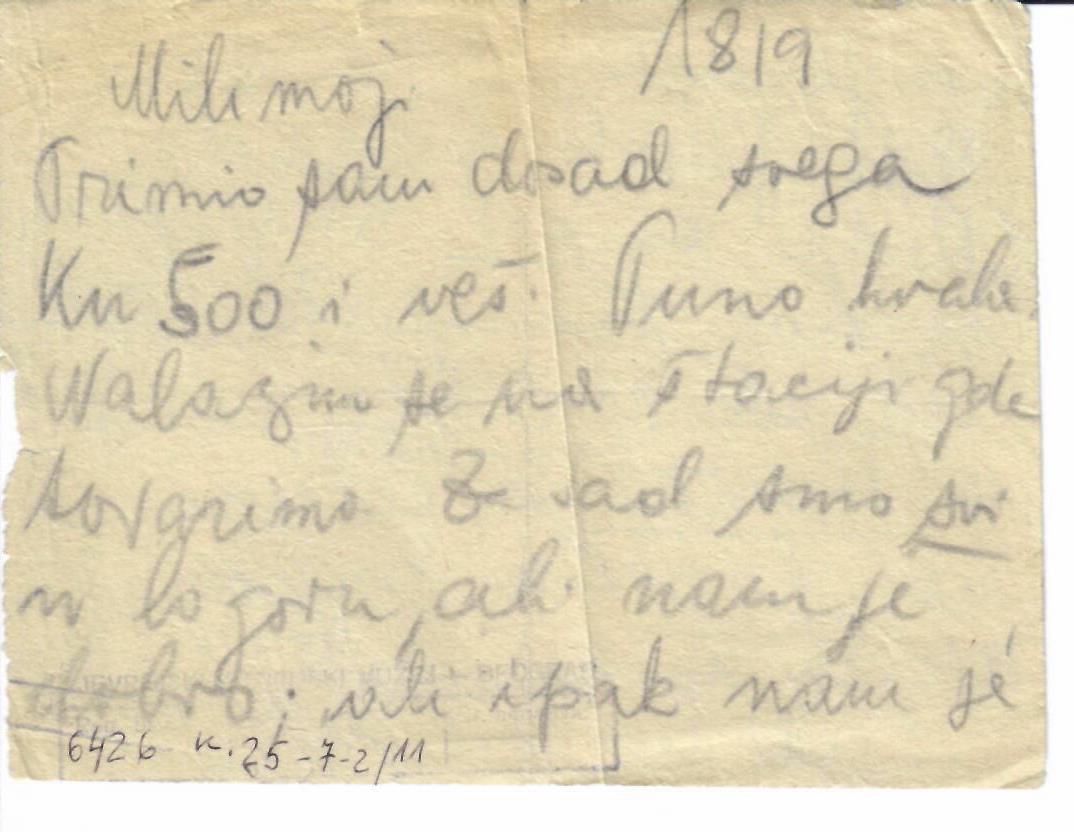 18/9
Mili moji
Primio sam dosad svega
Kn 500 i veš. Puno hvala.
Nalazim se na štaciji gde
 sad smo svi
u logoru, ali nam je
dobro; ali ipak nam je
6426 k. 25-7-2/11